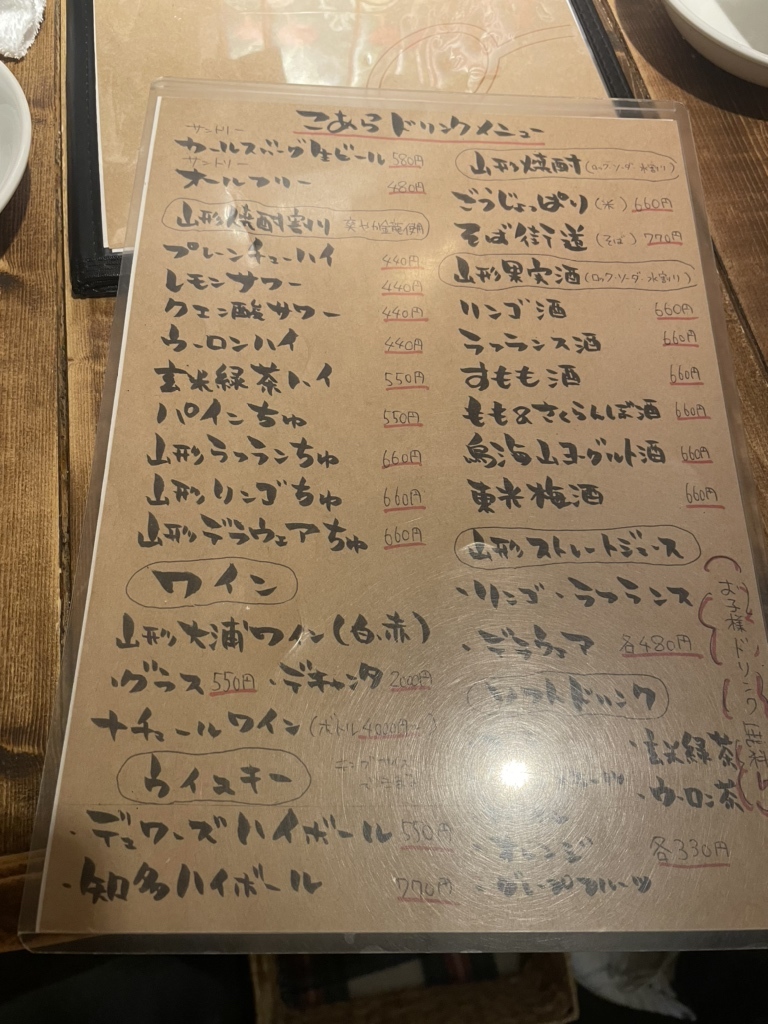 こあら ドリンクメニュー
サントリー
カールスバーグ生ビール 580円
サントリー
オールフリー 480円
山形焼酎割り 爽やか金龍使用
プレーンチューハイ 440円
レモンサワー 440円
クエン酸サワー 440円
ウーロンハイ 440円
玄米緑茶ハイ 550円
パインちゅ 550円
山形ラフランちゅ 660円
山形リンゴちゅ 660円
山形デラウェアちゅ 660円
ワイン
山形大浦ワイン(白、赤)
・グラス 550円 ・デキャンタ 2000円
ナチュールワイン(ボトル4000円〜)
ウイスキー
・デュワーズハイボール 550円
・知多ハイボール 770円
山形焼酎(ロック・ソーダ・水割り)
ごうじょっぱり(米) 660円
そば街道(そば) 770円
山形果実酒(ロック・ソーダ・水割り)
リンゴ酒 660円
ラフランス酒 660円
すもも酒 660円
もも&さくらんぼ酒 660円
鳥海山ヨーグルト酒 660円
東光梅酒 660円
山形ストレートジュース
・リンゴ・ラフランス
・デラウェア 各480円
ソフトドリンク
・玄米緑茶
・ウーロン茶
・オレンジ 各330円
お子様ドリンク無料